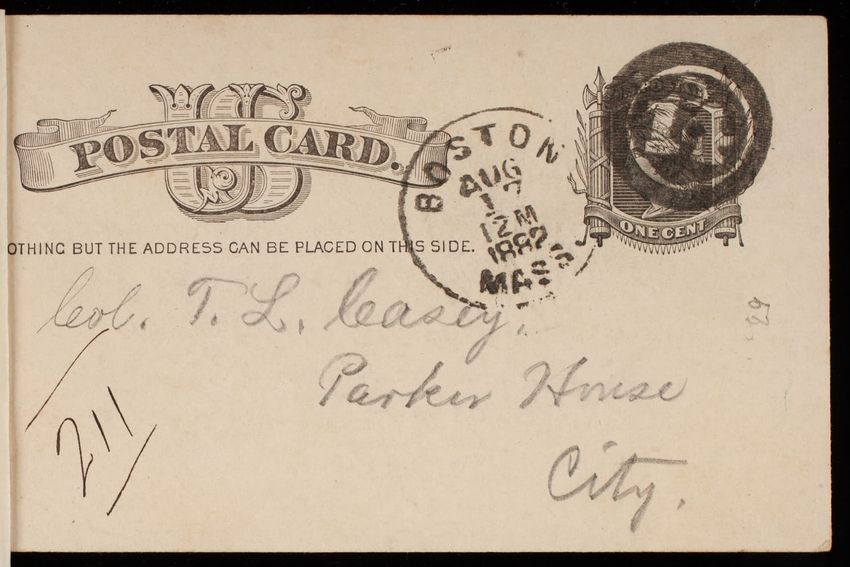 US
POSTAL CARD.
OTHING BUT THE ADDRESS CAN BE PLACED ON THIS SIDE.
BOSTON
AUG
17
12M
1882
MASS
ONE CENT
Col. T. L. Casey,
Parker House
City.
211
29